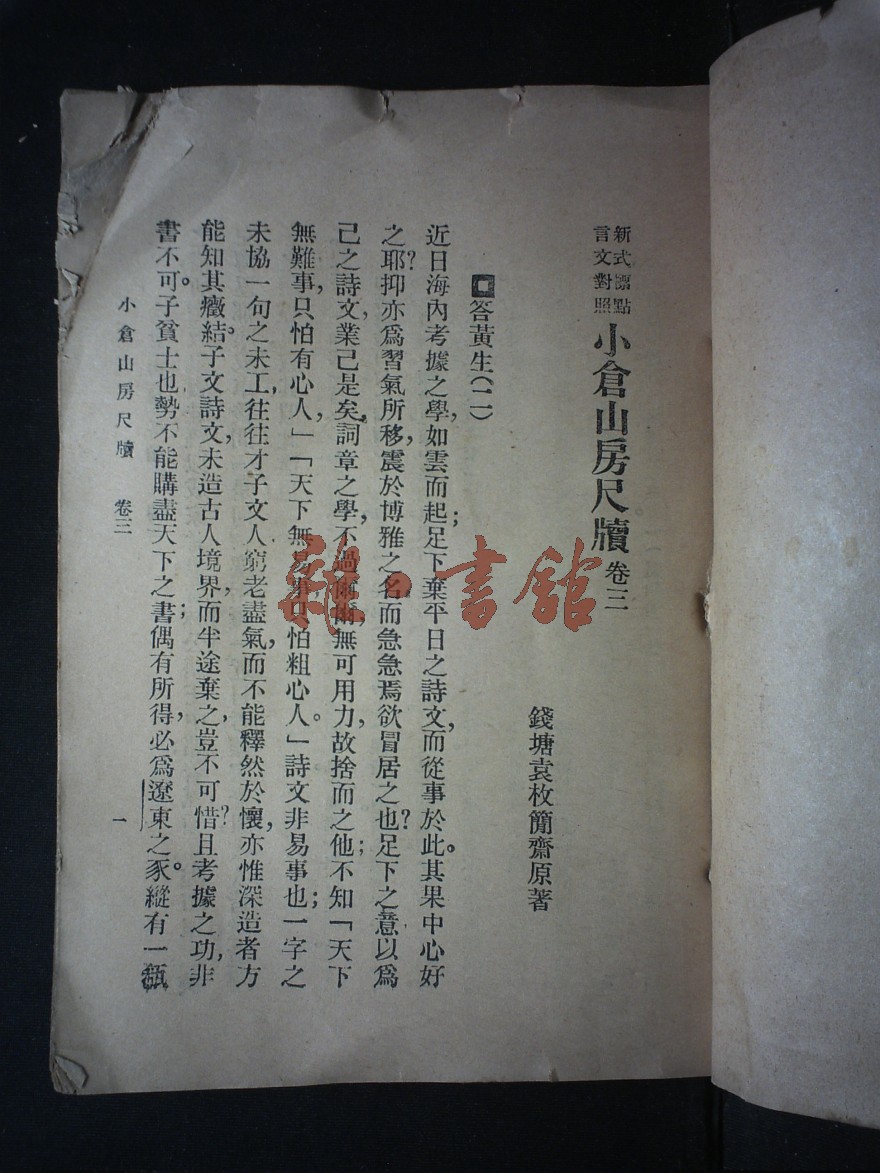 新式標點
言文對照
小倉山房尺牘 卷三
錢塘袁枚簡齋原著
答黃生(二)
近日海內考據之學,如雲而起;足下棄平日之詩文,而從事於此。其果中心好
之耶?抑亦爲習氣所移,震於博雅之名,而急急焉欲冒居之也?足下之意以爲
己之詩文,業已是矣,詞章之學,不過爾爾,無可用力,故捨而之他;不知「天下
無難事,只怕有心人,」「天下無易事,只怕粗心人。」詩文非易事也;一字之
未協,一句之未工,往往才子文人,窮老盡氣,而不能釋然於懷,亦惟深造者方
能知其癥結。子文詩文,未造古人境界,而半途棄之,豈不可惜?且考據之功,非
書不可。子貧士也,勢不能購盡天下之書;偶有所得,必爲遼東之豕。縱有一瓻
小倉山房尺牘 卷三
一
雜·書館